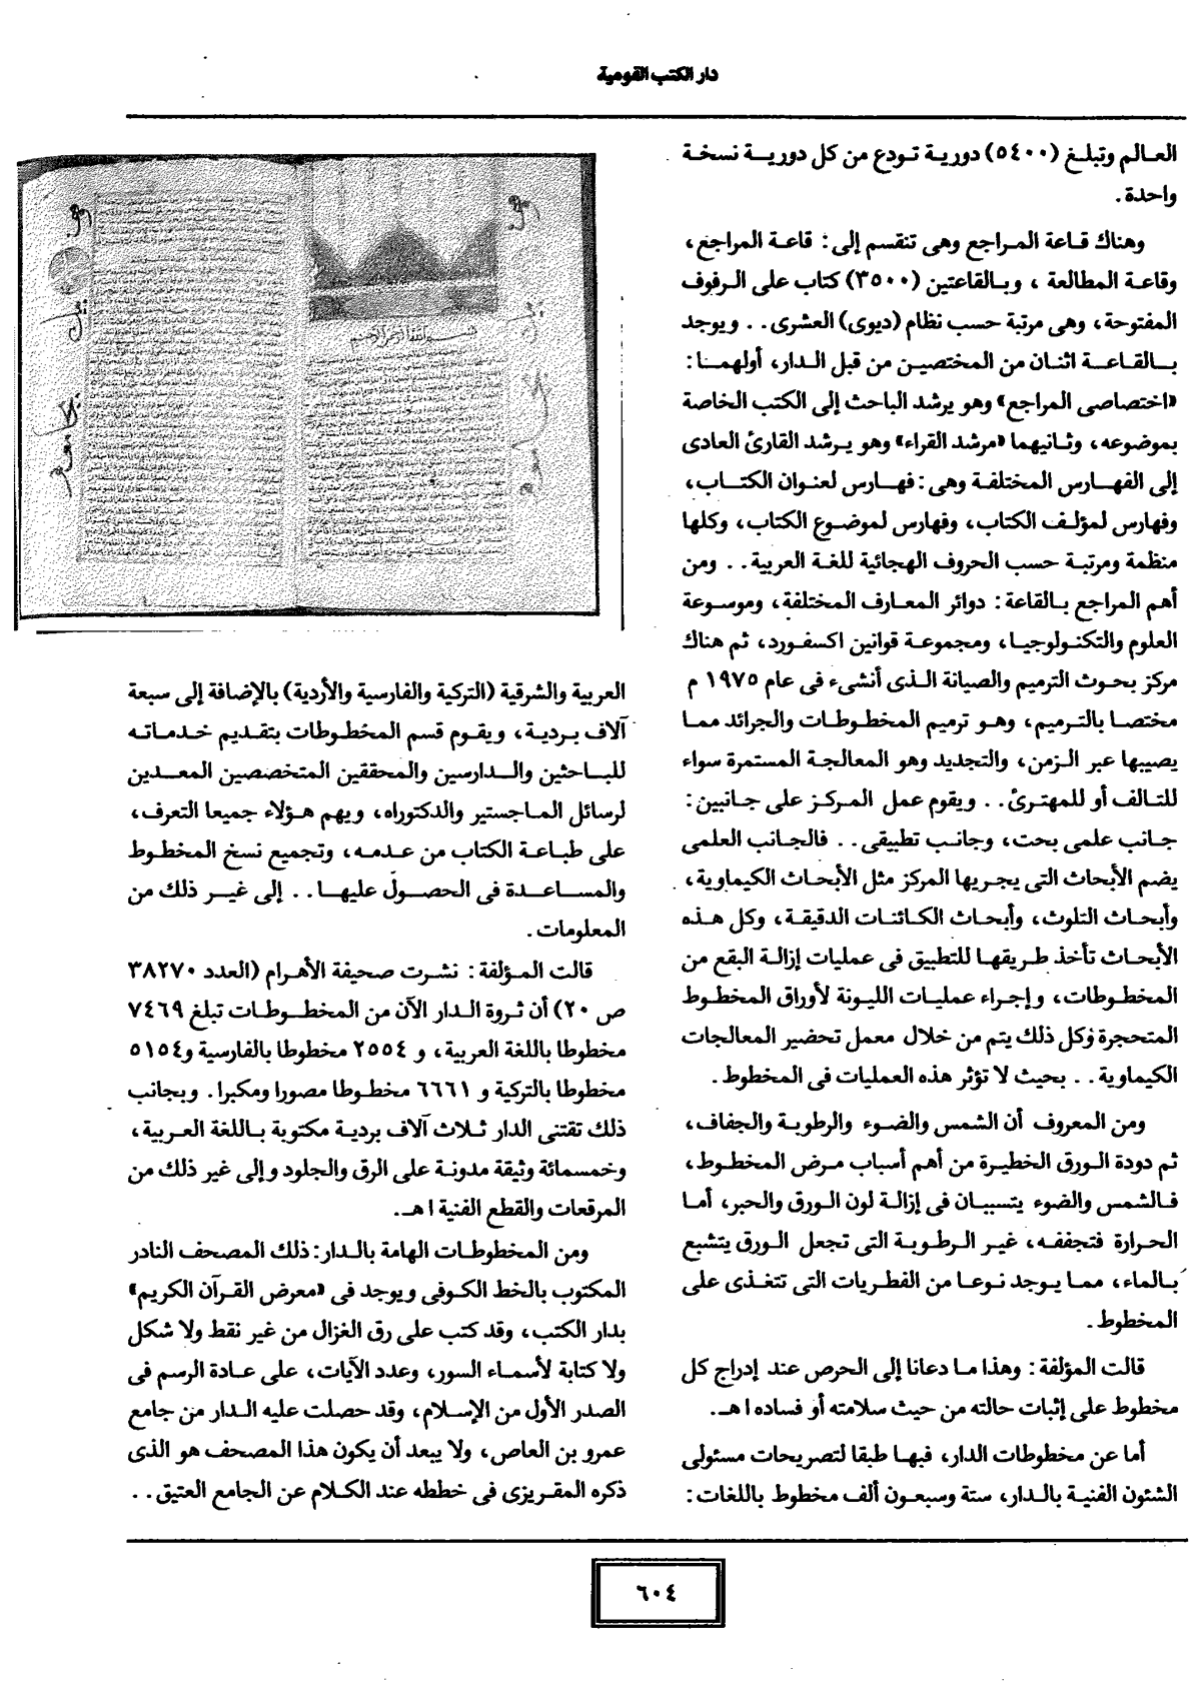 دار الكتب القومية
العالم وتبلغ (٥٤٠٠) دورية تودع من كل دورية نسخة
واحدة.
وهناك قاعة المراجع وهى تنقسم إلى: قاعة المراجع،
وقاعة المطالعة، وبالقاعتين (٣٥٠٠) كتاب على الرفوف
المفتوحة، وهى مرتبة حسب نظام (ديوى) العشرى.. ويوجد
بالقاعة اثنان من المختصين من قبل الدار، أولهما:
«اختصاصى المراجع» وهو يرشد الباحث إلى الكتب الخاصة
بموضوعه، وثانيهما «مرشد القراء» وهو يرشد القارئ العادى
إلى الفهارس المختلفة وهى: فهارس لعنوان الكتاب،
وفهارس لمؤلف الكتاب، وفهارس لموضوع الكتاب، وكلها
منظمة ومرتبة حسب الحروف الهجائية للغة العربية.. ومن
أهم المراجع بالقاعة: دوائر المعارف المختلفة، وموسوعة
العلوم والتكنولوجيا، ومجموعة قوانين اكسفورد، ثم هناك
مركز بحوث الترميم والصيانة الذى أنشىء فى عام ١٩٧٥ م
مختصا بالترميم، وهو ترميم المخطوطات والجرائد مما
يصيبها عبر الزمن، والتجديد وهو المعالجة المستمرة سواء
للتالف أو للمهترئ.. ويقوم عمل المركز على جانبين:
جانب علمى بحت، وجانب تطبيقى.. فالجانب العلمى
يضم الأبحاث التى يجريها المركز مثل الأبحاث الكيماوية،
وأبحاث التلوث، وأبحاث الكائنات الدقيقة، وكل هذه
الأبحاث تأخذ طريقها للتطبيق فى عمليات إزالة البقع من
المخطوطات، وإجراء عمليات الليونة لأوراق المخطوط
المتحجرة وكل ذلك يتم من خلال معمل تحضير المعالجات
الكيماوية.. بحيث لا تؤثر هذه العمليات فى المخطوط.
ومن المعروف أن الشمس والضوء والرطوبة والجفاف،
ثم دودة الورق الخطيرة من أهم أسباب مرض المخطوط،
فالشمس والضوء يتسببان فى إزالة لون الورق والحبر، أما
الحرارة فتجففه، غير الرطوبة التى تجعل الورق يتشبع
بالماء، مما يوجد نوعا من الفطريات التى تتغذى على
المخطوط.
قالت المؤلفة: وهذا ما دعانا إلى الحرص عند إدراج كل
مخطوط على إثبات حالته من حيث سلامته أو فساده اهـ.
أما عن مخطوطات الدار، فبها طبقا لتصريحات مسئولى
الشئون الفنية بالدار، ستة وسبعون ألف مخطوط باللغات:
بسم الله الرحمن الرحيم
العربية والشرقية (التركية والفارسية والأردية) بالإضافة إلى سبعة
آلاف بردية، ويقوم قسم المخطوطات بتقديم خدماته
للباحثين والدارسين والمحققين المتخصصين المعدين
لرسائل الماجستير والدكتوراه، ويهم هؤلاء جميعا التعرف،
على طباعة الكتاب من عدمه، وتجميع نسخ المخطوط
والمساعدة فى الحصول عليها.. إلى غير ذلك من
المعلومات.
قالت المؤلفة: نشرت صحيفة الأهرام (العدد ٣٨٢٧٠
ص ٢٠) أن ثروة الدار الآن من المخطوطات تبلغ ٧٤٦٩
مخطوطا باللغة العربية، و ٢٥٥٤ مخطوطا بالفارسية و٥١٥٤
مخطوطا بالتركية و ٦٦٦١ مخطوطا مصورا ومكبرا. وبجانب
ذلك تقتنى الدار ثلاث آلاف بردية مكتوبة باللغة العربية،
وخمسمائة وثيقة مدونة على الرق والجلود وإلى غير ذلك من
المرقعات والقطع الفنية اهـ.
ومن المخطوطات الهامة بالدار: ذلك المصحف النادر
المكتوب بالخط الكوفى ويوجد فى «معرض القرآن الكريم»
بدار الكتب، وقد كتب على رق الغزال من غير نقط ولا شكل
ولا كتابة لأسماء السور، وعدد الآيات، على عادة الرسم فى
الصدر الأول من الإسلام، وقد حصلت عليه الدار من جامع
عمرو بن العاص، ولا يبعد أن يكون هذا المصحف هو الذى
ذكره المقريزى فى خططه عند الكلام عن الجامع العتيق..
٦٠٤